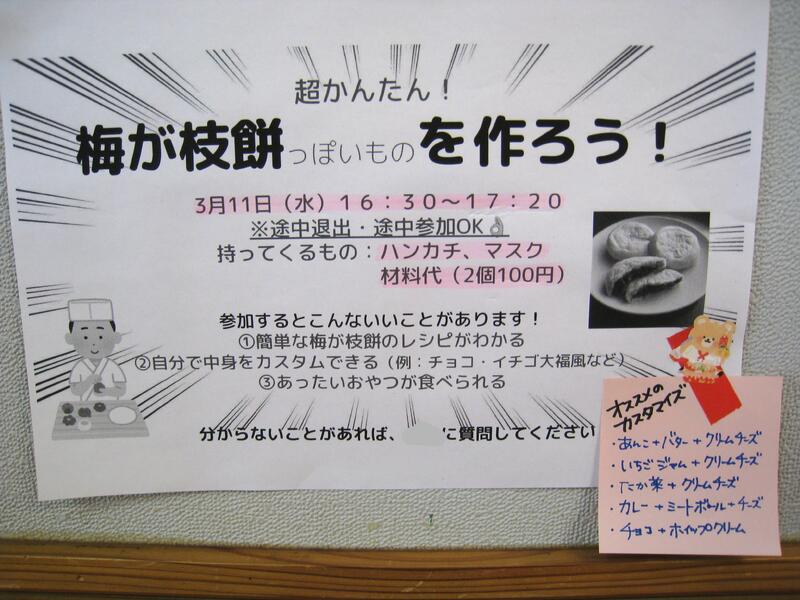 超かんたん！
梅が枝餅っぽいものを作ろう！
3月11日（水）１６：３０～１７：２０
※途中退出・途中参加OK👌
持ってくるもの：ハンカチ、マスク
材料代（2個100円）
参加するとこんないいことがあります！
①簡単な梅が枝餅のレシピがわかる
②自分で中身をカスタムできる（例：チョコ・イチゴ大福風など）
③あったいおやつが食べられる
分からないことがあれば、に質問してください
オススメの
カスタマイズ
・あんこ+バター+クリームチーズ
・いちごジャム+クリームチーズ
・たか菜+クリームチーズ
・カレー+ミートボール+チーズ
・チョコ+ホイップクリーム